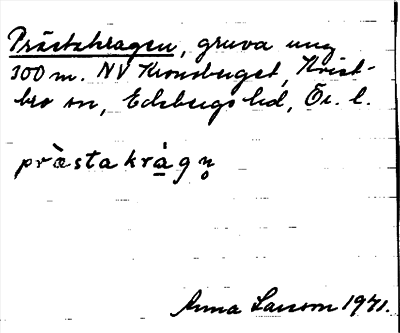 Prästkragen, gruva ung
300 m. NV Kronberget, Kvist-
bro sn, Edsbergs hd, Ör. l.
pràsta kràg n̥
Anna Larsson 1941.